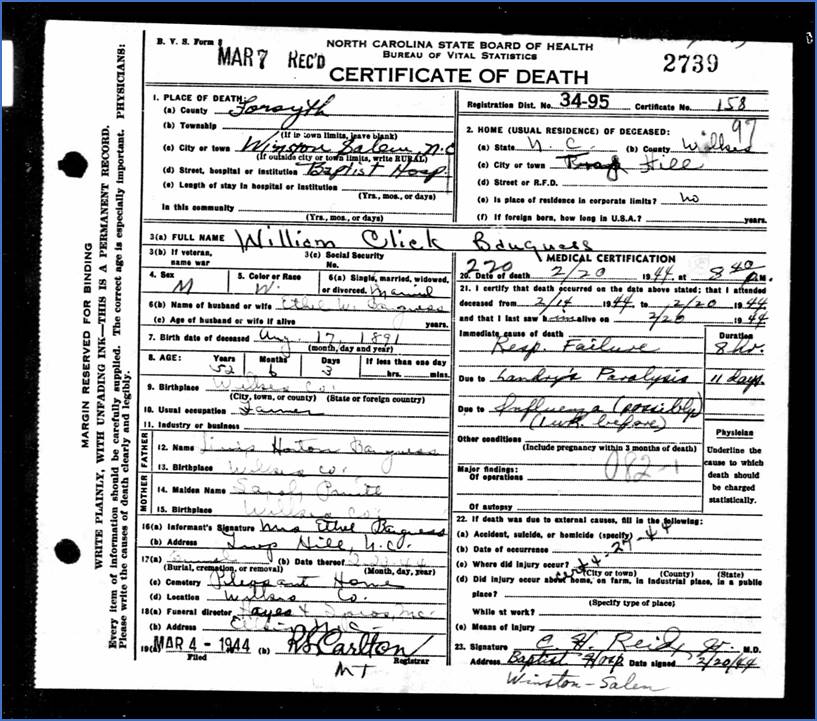 B. V. S. Form
MAR 7 REC'D
NORTH CAROLINA STATE BOARD OF HEALTH
BUREAU OF VITAL STATISTICS
CERTIFICATE OF DEATH
2739
MARGIN RESERVED FOR BINDING
WRITE PLAINLY, WITH UNFADING INK—THIS IS A PERMANENT RECORD.
Every item of information should be carefully supplied. The correct age is especially important. PHYSICIANS:
Please write the causes of death clearly and legibly.
1. PLACE OF DEATH:
(a) County Forsyth
(b) Township
(If in town limits, leave blank)
(c) City or town Winston Salem, N.C
(If outside city or town limits, write RURAL)
(d) Street, hospital or institution Baptist Hosp.
(e) Length of stay in hospital or institution
(Yrs., mos., or days)
In this community
(Yrs., mos., or days)
Registration Dist. No. 34-95 Certificate No. 158
97
2. HOME (USUAL RESIDENCE) OF DECEASED:
(a) State N. C. (b) County Wilkes
(c) City or town Hill
(d) Street or R.F.D.
(e) Is place of residence in corporate limits? no
(f) If foreign born, how long in U.S.A.? years.
3(a) FULL NAME William Click Bauguess
3(b) If veteran, name war
3(c) Social Security No.
4. Sex M
5. Color or Race W.
6(a) Single, married, widowed, or divorced. Married
6(b) Name of husband or wife Ethel W. Bauguess
(c) Age of husband or wife if alive years.
7. Birth date of deceased Aug. 17, 1891
(month, day and year)
8. AGE: Years Months Days If less than one day
52 6 3 hrs. mins.
9. Birthplace Wilkes Co.
(City, town, or county) (State or foreign country)
10. Usual occupation Farmer
11. Industry or business
FATHER
12. Name Horton Bauguess
13. Birthplace Wilkes Co.
MOTHER
14. Maiden Name Sarah
15. Birthplace Wilkes Co.
16(a) Informant's Signature Mrs Ethel Bauguess
(b) Address Hill, N.C.
17(a) (b) Date thereof
(Burial, cremation, or removal) (Month, day, year)
(c) Cemetery Pleasant Home
(d) Location Wilkes Co.
18(a) Funeral director Hayes
(b) Address N.C.
19(a) MAR 4 - 1944 (b) RS Carlton
Filed Registrar
MT
MEDICAL CERTIFICATION
220
20. Date of death 2/20 1944 at 8 40 P.M.
21. I certify that death occurred on the date above stated; that I attended
deceased from 2/14 1944 to 2/20 1944
and that I last saw him alive on 2/20 1944
Immediate cause of death Duration
Resp. Failure 8 hr.
Due to Landry's Paralysis 11 days.
Due to Influenza (possibly)
(1 wk. before)
Other conditions
(Include pregnancy within 3 months of death)
Major findings:
Of operations
082-1
Of autopsy
Physician
Underline the cause to which death should be charged statistically.
22. If death was due to external causes, fill in the following:
(a) Accident, suicide, or homicide (specify)
(b) Date of occurrence
(c) Where did injury occur?
(City or town) (County) (State)
(d) Did injury occur about home, on farm, in industrial place, in a public
place?
(Specify type of place)
While at work?
(e) Means of injury
23. Signature C. H. Reid, Jr. M.D.
Address Baptist Hosp Date signed 2/20/44
Winston-Salem